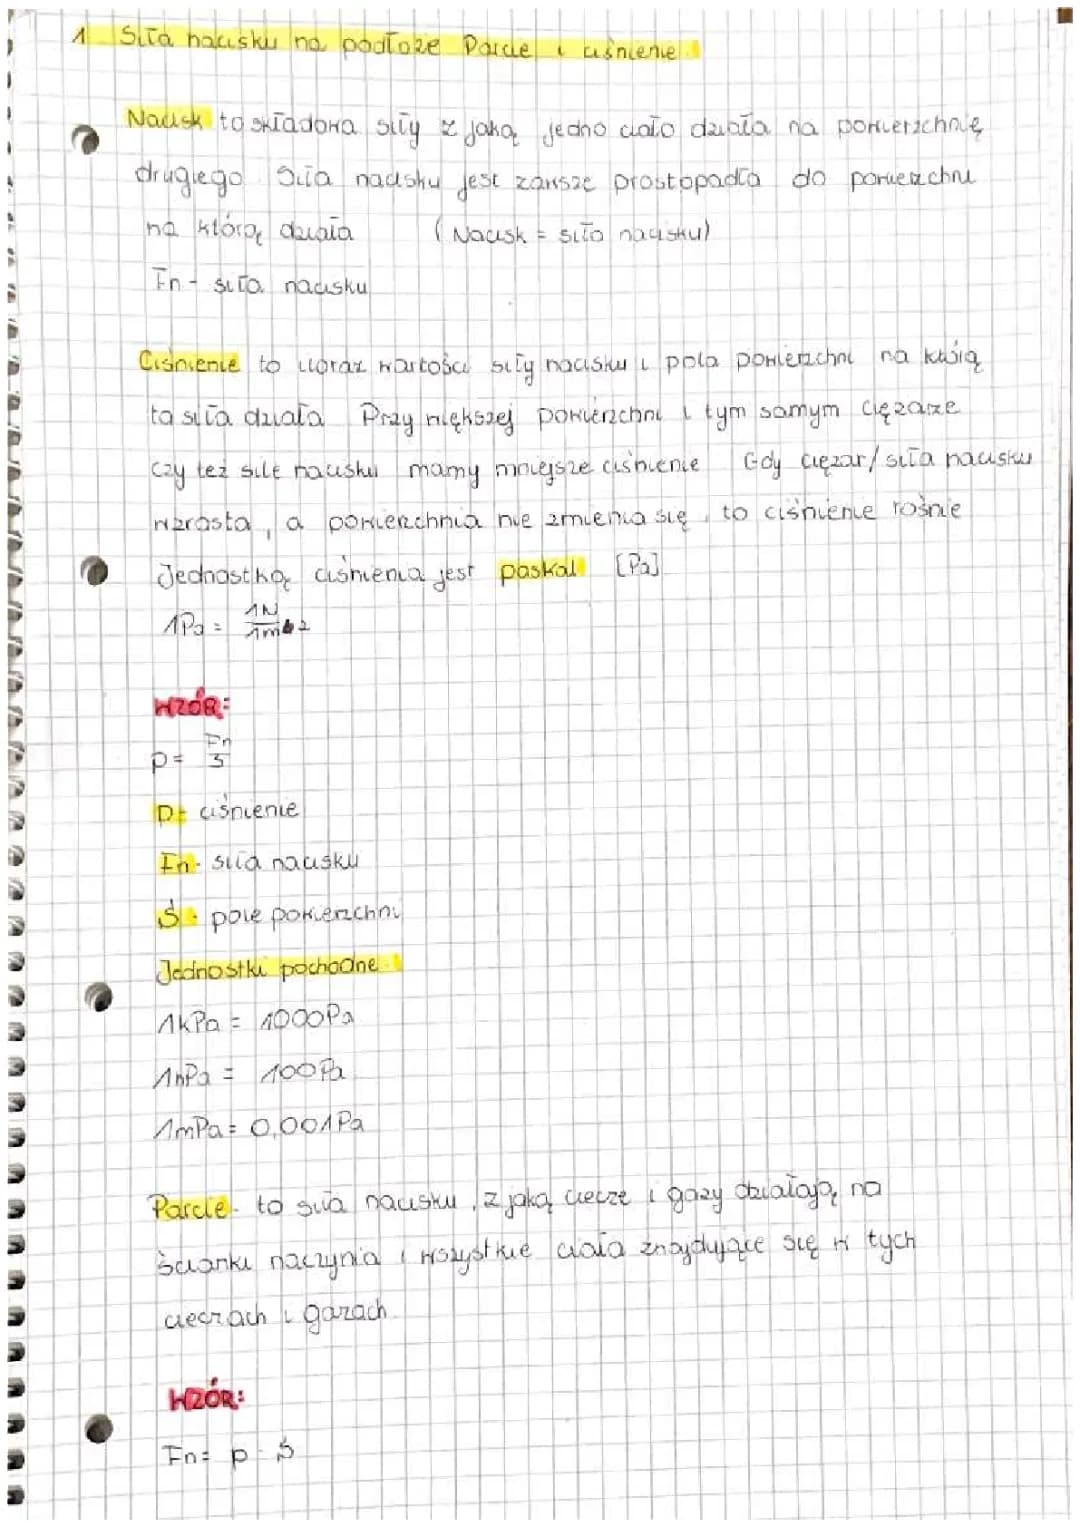 1. Siła nacisku na podłoże Parcie i ciśnienie.
Nacisk to składowa siły z jaką jedno ciało działa na powierzchnię
drugiego. Siła nacisku jest zawsze prostopadła do powierzchni
na którą działa (Nacisk = siła nacisku)
Fn - siła nacisku
Ciśnienie to iloraz wartości siły nacisku i pola powierzchni na którą
ta siła działa. Przy większej powierzchni i tym samym ciężarze
czy też sile nacisku mamy mniejsze ciśnienie. Gdy ciężar/siła nacisku
wzrasta, a powierzchnia nie zmienia się, to ciśnienie rośnie
Jednostką ciśnienia jest paskal [Pa]
1Pa = 1N/1m2
WZÓR:
p = Fn/S
p - ciśnienie
Fn - siła nacisku
S - pole powierzchni
Jednostki pochodne.
1kPa = 1000Pa
1hPa = 100Pa
1mPa = 0,001Pa
Parcie - to siła nacisku, z jaką ciecze i gazy działają na
ścianki naczynia i wszystkie ciała znajdujące się w tych
cieczach i gazach.
WZÓR:
Fn = p · S